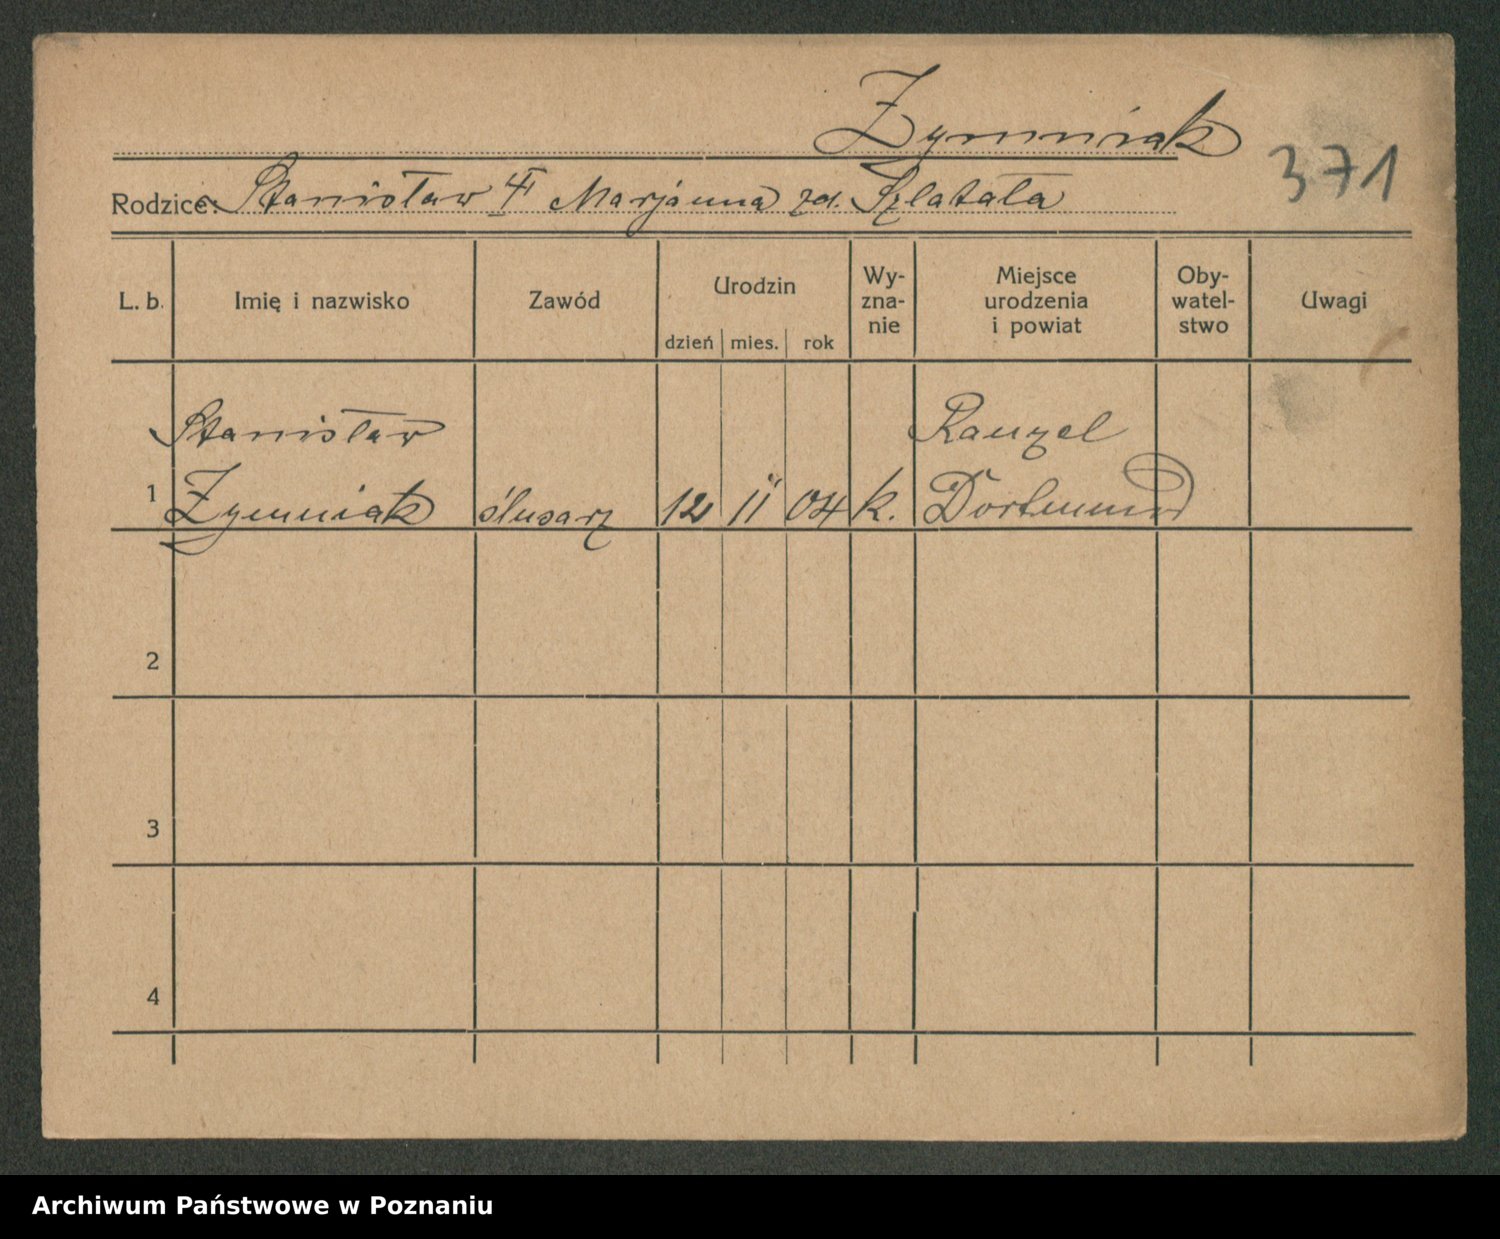 Zymniak
371
Rodzice: Stanisław Marjanna zd. Szlatała
L. b. Imię i nazwisko Zawód Urodzin dzień mies. rok Wy-zna-nie Miejsce urodzenia i powiat Oby-watel-stwo Uwagi
Stanisław Rauxel
1 Zymniak ślusarz 12 11 04 k. Dortmund
2
3
4
Archiwum Państwowe w Poznaniu